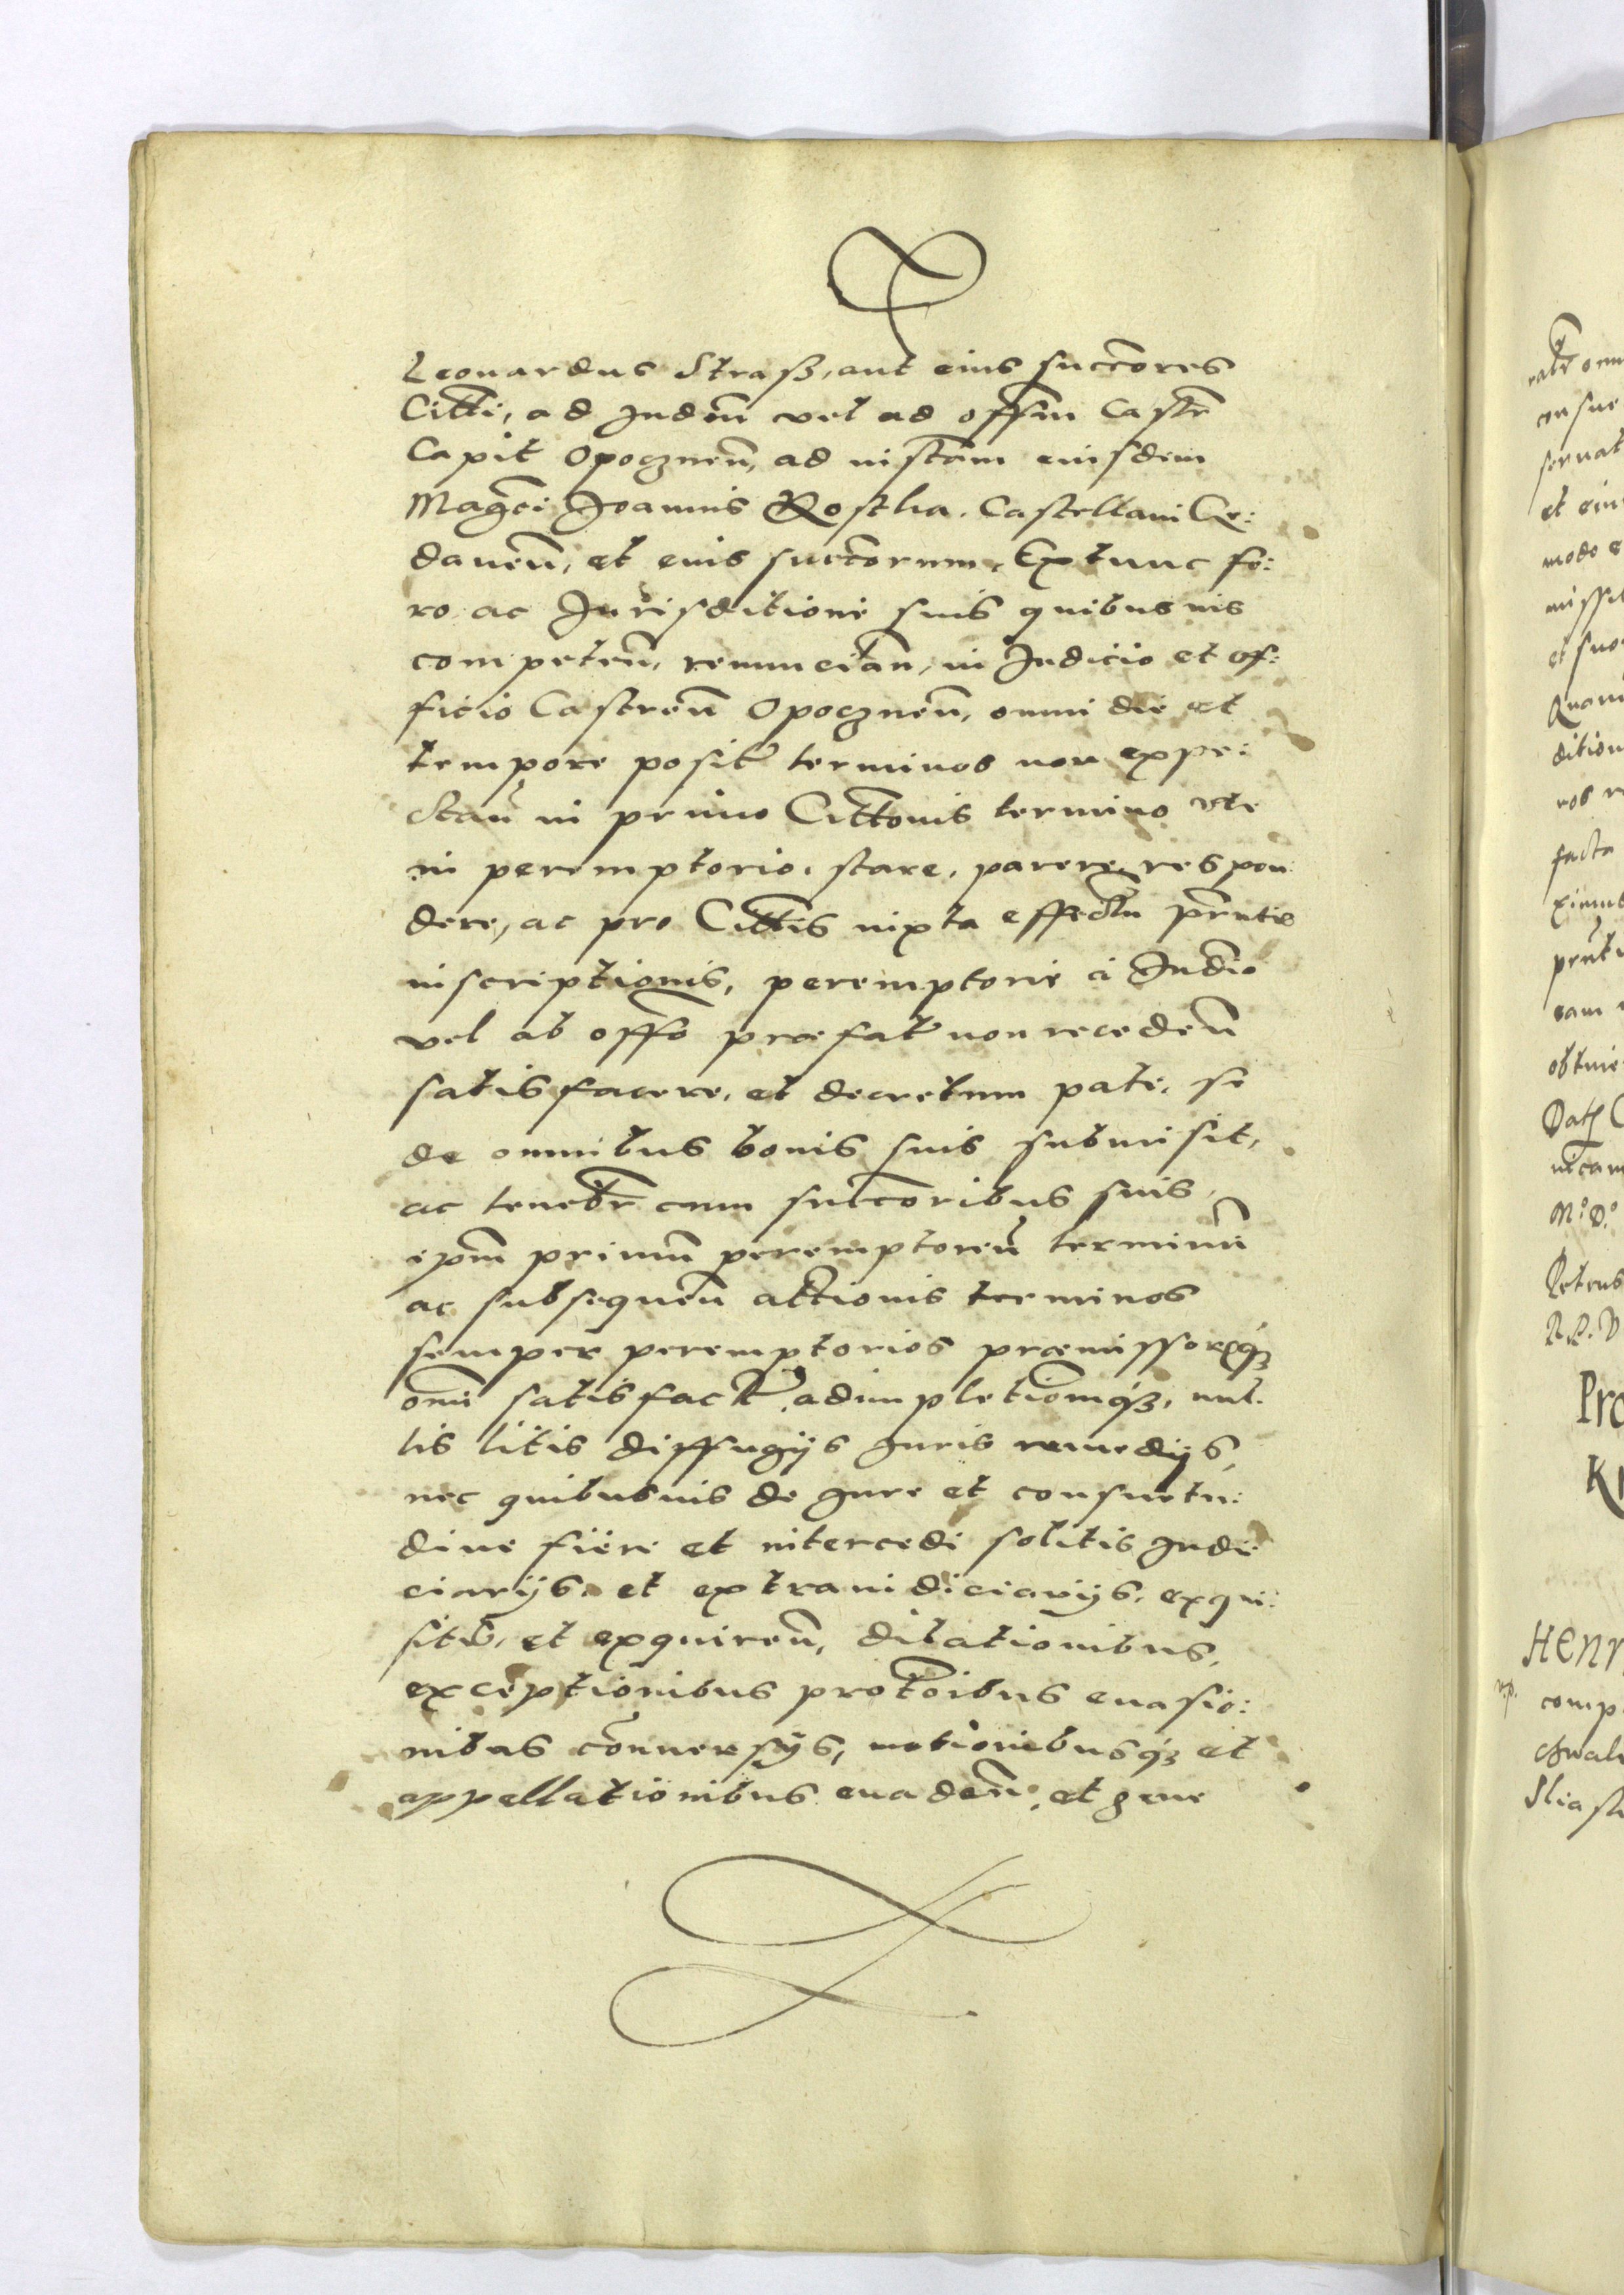 Leonardus Straß, aut eius succores
Citti, ad Judm vel ad offm Castr
Capit Opocznen, ad instam eiusdem
Magci Joannis Kostka. Castellani Ge:
danen, et eius succorum. Extunc fo:
ro ac Jurisditione suis quibusuis
competen, renuncian, in Judicio et of:
ficio Castren Opocznen, omni die et
tempore posit terminos non expe:
ctan in primo Cittonis termino vte
in peremptorio. stare. parere respon
dere, ac pro Cittis iuxta effectu prntis
inscriptionis, peremptorie à Judio
vel ab offo præfat non receden
satisfacere. et decretum pate. se
de omnibus bonis suis submisit,
ac tenebr cum succoribus suis,
ipm primu peremptoreu terminu
ac subsequen attionis terminos
semper peremptorios præmissorqß
omi satisfact adimpletiomqß, nul
lis litis diffugijs Juris remedijs,
nec quibusuis de Jure et consuetu:
dine fiere et intercedi solitis Judi
ciarijs et extraiudiciarijs. exqui:
sit, et exquiren, dilationibus,
exceptionibus protoibus euasio:
nibus conuersijs, motionibusqß et
appellationibus euaden et gene
ratr om
consue
seruat
et eiu
modo e
missit
et suo
Quam
dition
ros r
facta
ximus
prnti
cam
obtine
Dat C
micam
Mo Do
Petrus
R. P. D
Pro
Kr
HENR
comp
Chwal
Slia st